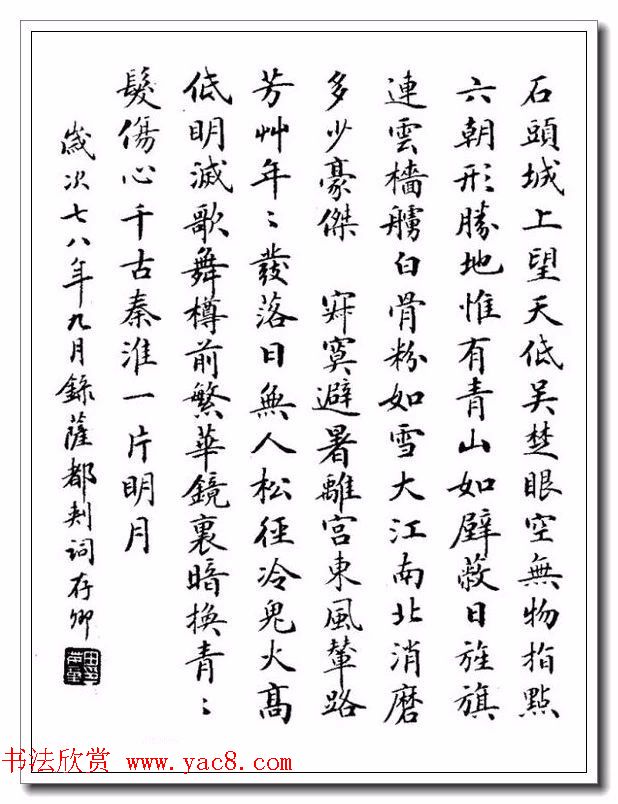 石頭城上望天低吴楚眼空無物指點
六朝形勝地惟有青山如壁蔽日旌旗
連雲檣艣白骨粉如雪大江南北消磨
多少豪傑 寂寞避暑離宮東風輦路
芳艸年〻發落日無人松徑冷鬼火高
低明滅歌舞樽前繁華鏡裏暗換青〻
髮傷心千古秦淮一片明月
歲次七八年九月錄薩都剌詞存卿
书法欣赏 www.yac8.com